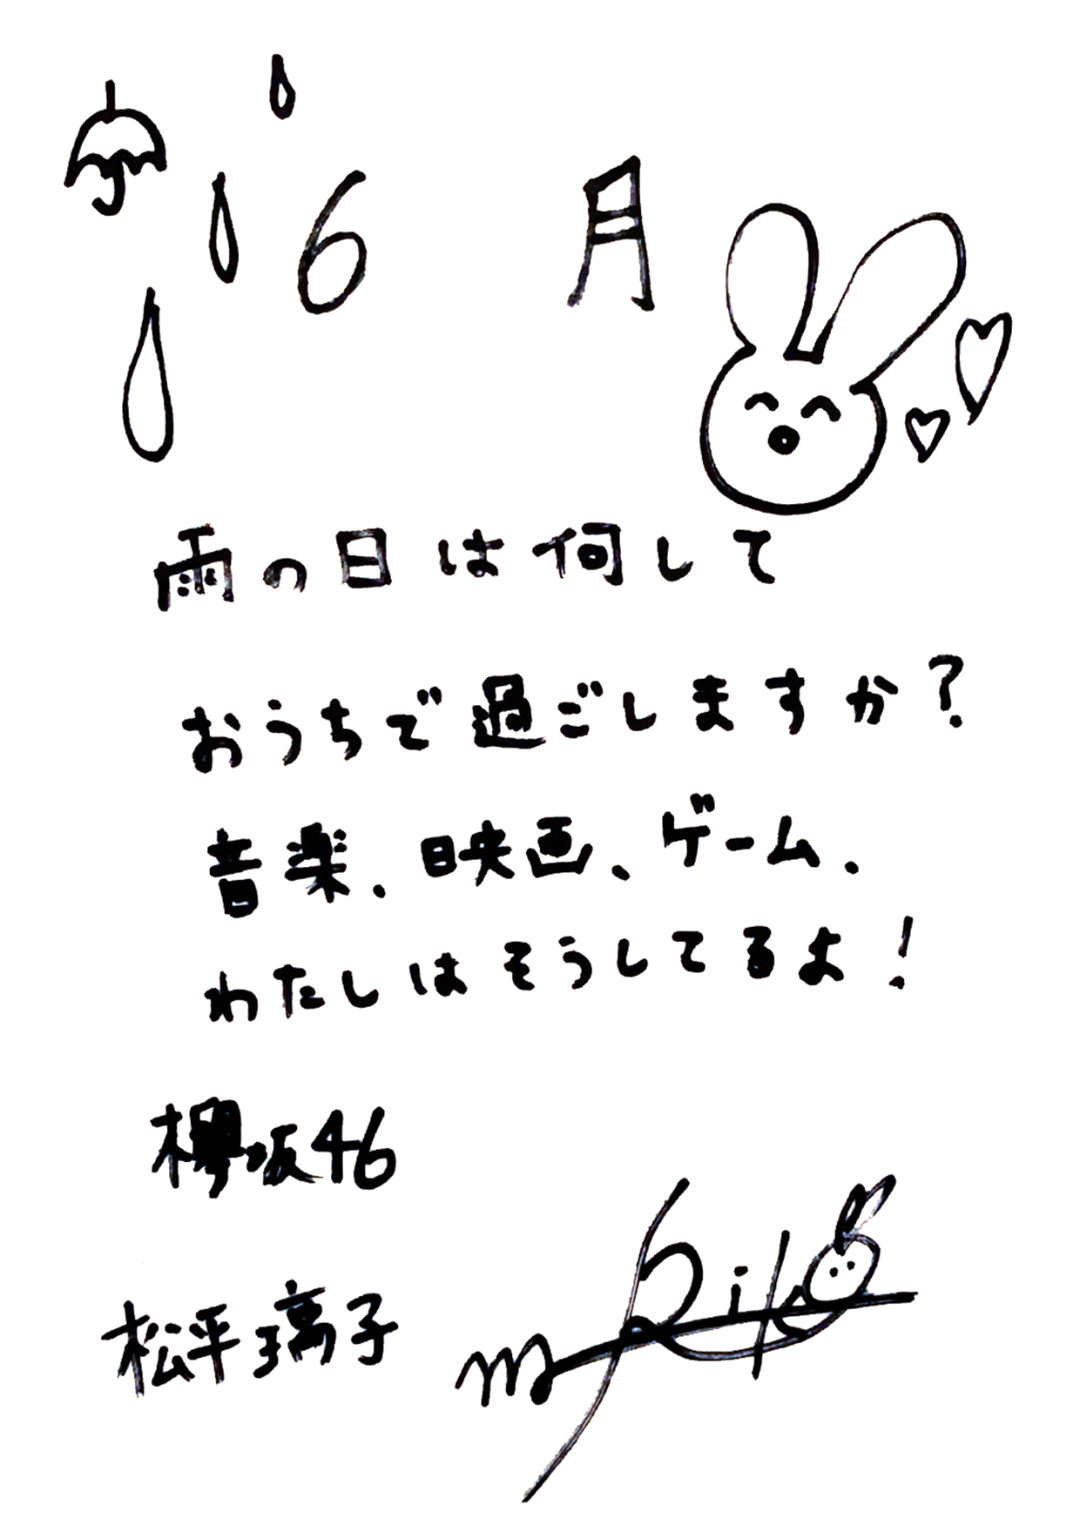 6月
雨の日は何して
おうちで過ごしますか?
音楽、映画、ゲーム、
わたしはそうしてるよ!
欅坂46
松平璃子
m Riko